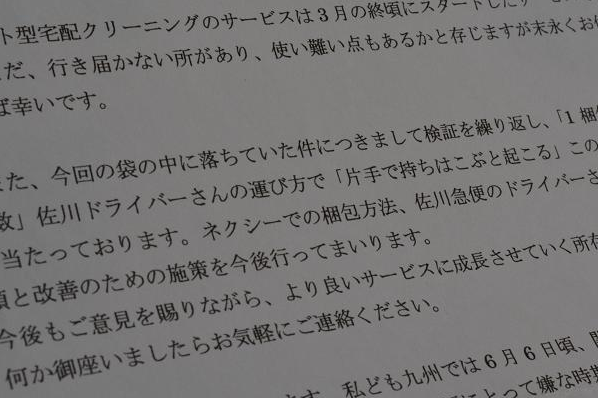 ト型宅配クリーニングのサービスは3月の終頃にスタートしたサー
だ、行き届かない所があり、使い難い点もあるかと存じますが末永くお
ば幸いです。
た、今回の袋の中に落ちていた件につきまして検証を繰り返し、「1梱
数」佐川ドライバーさんの運び方で「片手で持ちはこぶと起こる」この
当たっております。ネクシーでの梱包方法、佐川急便のドライバーさ
頼と改善のための施策を今後行ってまいります。
今後もご意見を賜りながら、より良いサービスに成長させていく所存
何か御座いましたらお気軽にご連絡ください。
ます。私ども九州では6月6日頃、
にとって嫌な時期